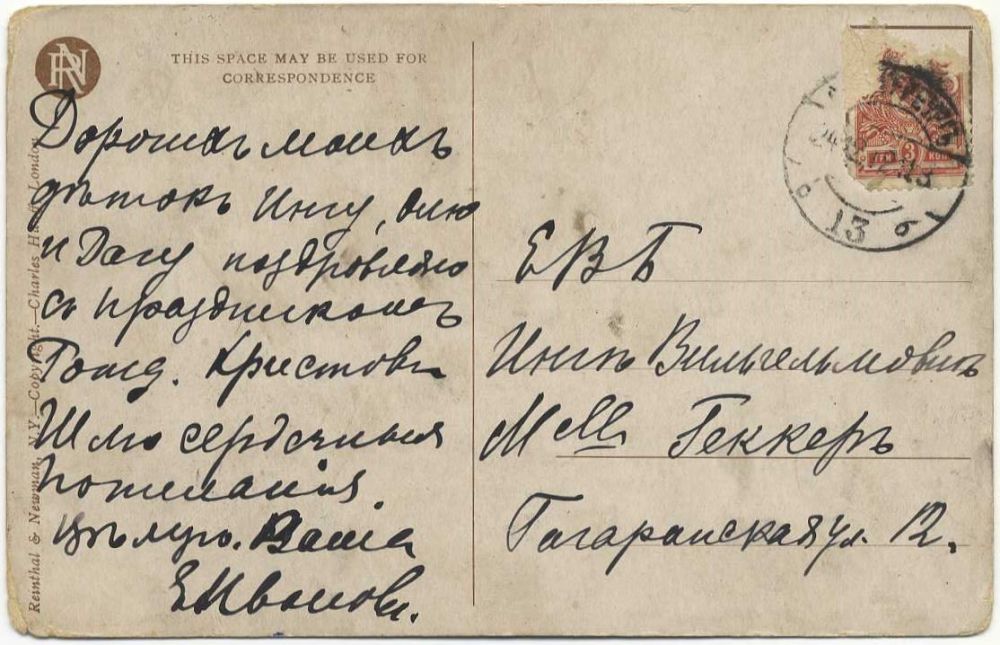 RN
THIS SPACE MAY BE USED FOR
CORRESPONDENCE
Дорогихъ моихъ
дѣтокъ Ингу, Олю
и Дагу поздровляю
съ праздникомъ
Рожд. Христовы
Шлю сердечныя
пожелания
цѣлую. Ваша
Е Иванова.
Reinthal & Newman, N.Y.—Copyright.—Charles London
ЕВБ
Ингѣ Вильгельмовнѣ
Mlle Геккеръ
Гагаринская ул. 12.
3
13